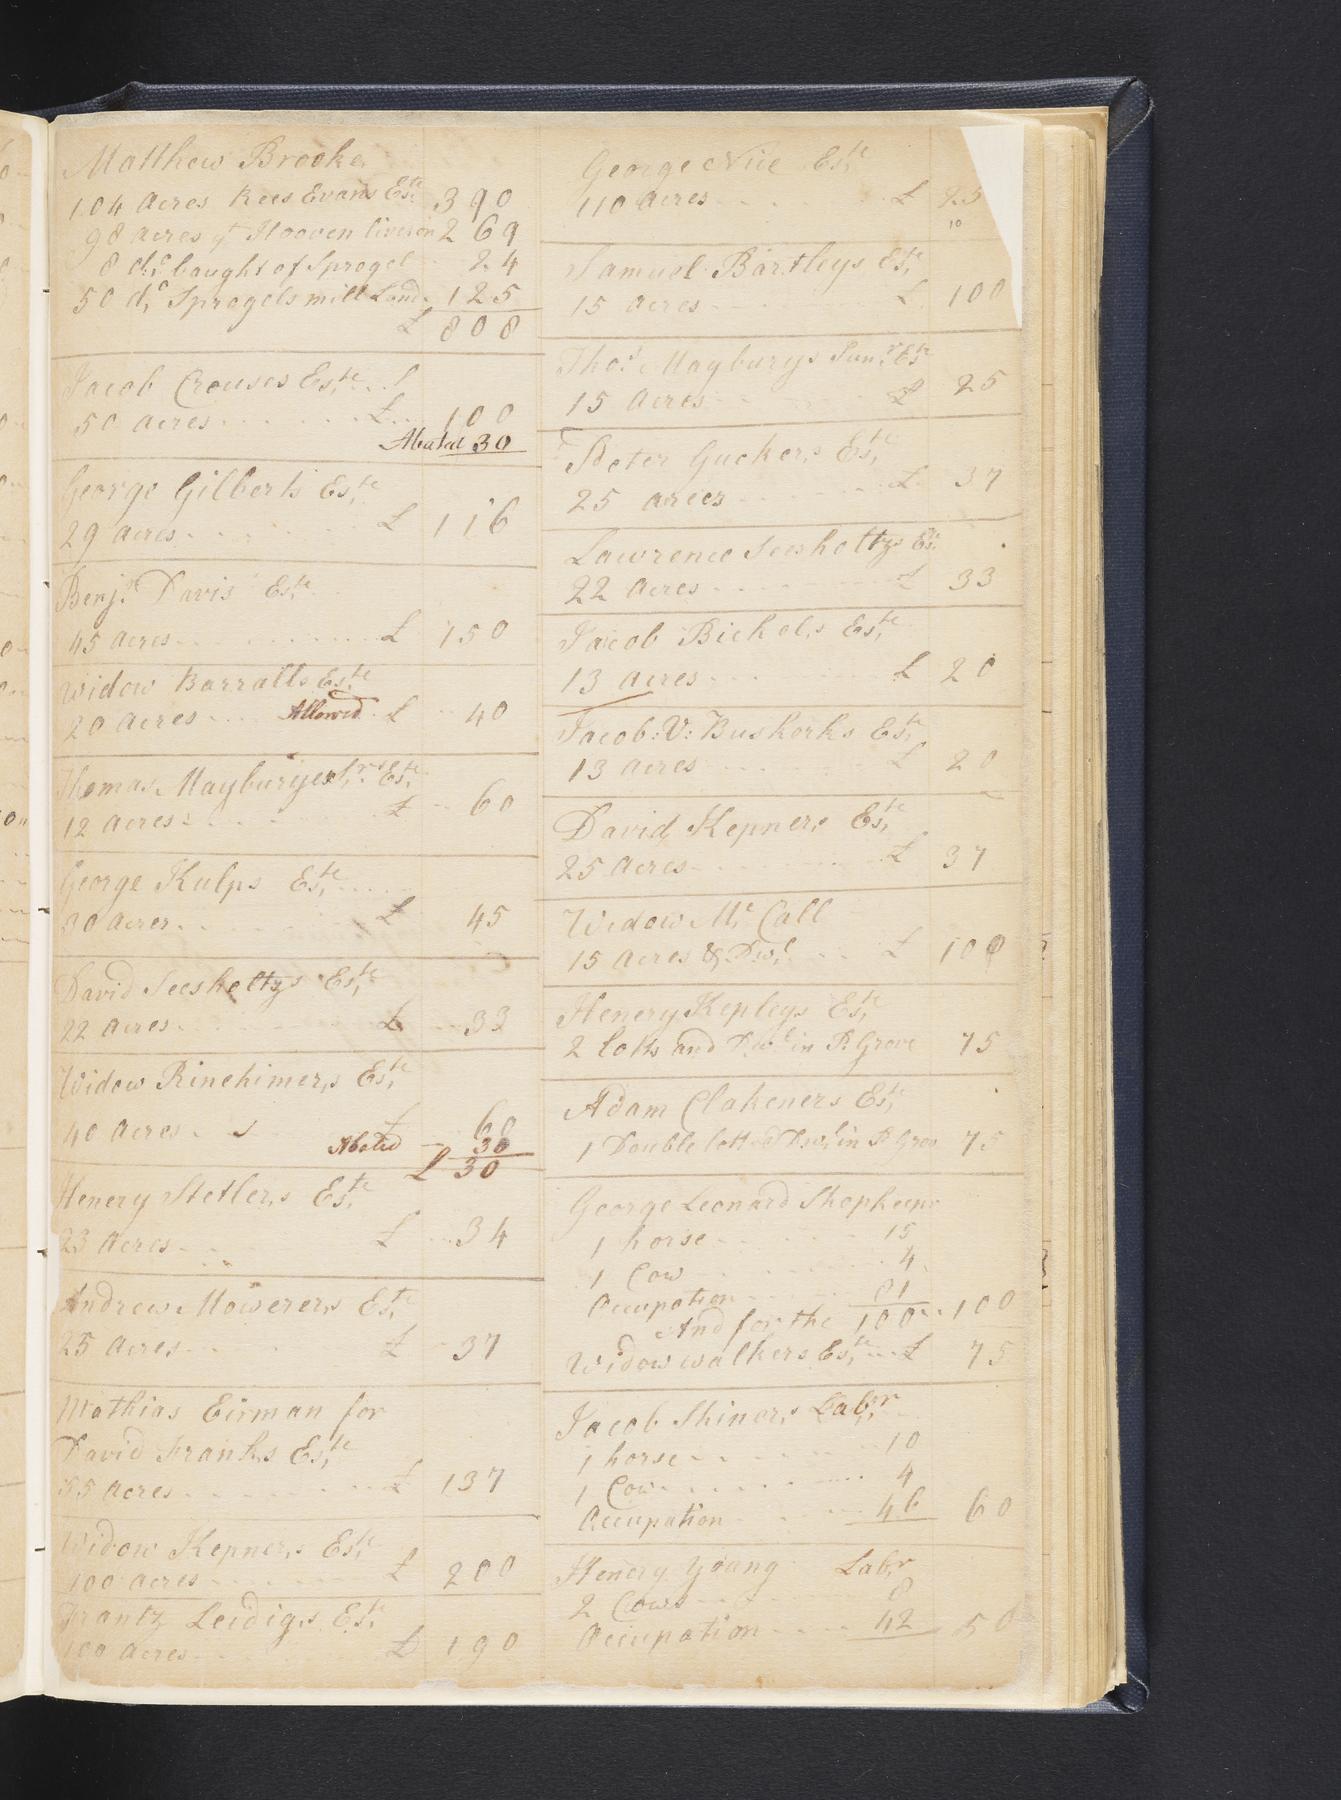 Matthew Brooke
104 Acres Rees Evans Est.te 390
98 acres yt Hooven lives on 269
8 do. bought of Sprogel 24
50 do. Sprogels mill Land 125
£ 808
Jacob Crouses Est.te
50 acres £ 100
Abated 30
George Gilberts Est.te
29 acres £ 116
Benjn. Davis Est.te
45 acres £ 150
Widow Barralls Est.te
20 acres Allowed £ 40
Thomas Mayburyes Est.te
12 acres £ 60
George Kulps Est.te
30 acres £ 45
David Seesholtzs Est.te
22 acres £ 33
Widow Rinehimers Est.te
40 acres £ 60
Abated 30
£ 30
Henery Stetlers Est.te
23 acres £ 34
Andrew Mowerers Est.te
25 acres £ 37
Mathias Eirman for
David Franks Est.te
55 acres £ 137
Widow Kepners Est.te
100 acres £ 200
Frantz Leidigs Est.te
100 acres £ 190
George Nice Est.te
110 acres £ 25
10
Samuel Bartleys Est.te
15 acres £ 100
Thos. Mayburys Junr. Est.te
15 acres £ 25
Peter Guckers Est.te
25 acres £ 37
Lawrence Seesholtzs Est.te
22 acres £ 33
Jacob Bickels Est.te
13 acres £ 20
Jacob: V: Buskorks Est.te
13 acres £ 20
David Kepners Est.te
25 acres £ 37
Widow Mc. Call
15 acres & Dwl. £ 100
Henery Kepleys Est.te
2 lotts and Dwl. in P. Grove 75
Adam Clakeners Est.te
1 Double lott and Dwl. in P. Grov 75
George Leonard Shopkeepr
1 horse 15
1 Cow 4
Occupation 81
And for the 100 100
Widow walkers Est.te £ 75
Jacob Shiners Labr.
1 horse 10
1 Cow 4
Occupation 46 60
Henery Young Labr.
2 Cows 8
Occupation 42 50